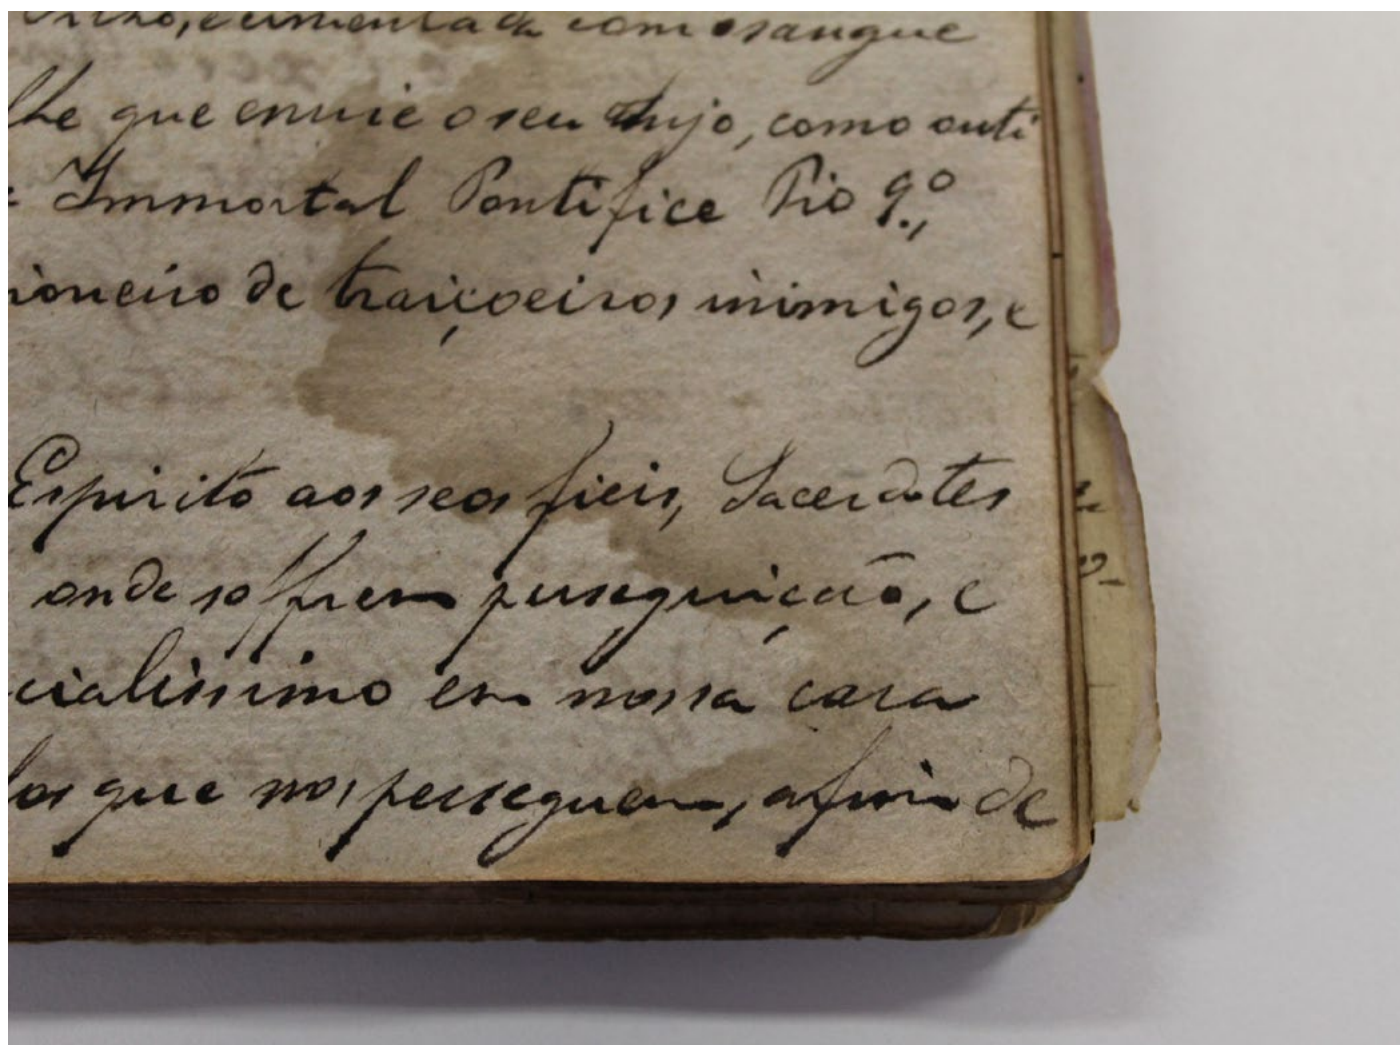 cimentada com o sangue
lhe que envie o seu Anjo, como outi
Immortal Pontifice Pio 9.º,
rioneiro de traiçoeiros inimigos, e
Espirito aos seos fieis, Sacerdotes
onde soffrem perseguição, e
cialissimo em nossa casa
los que nos perseguem, afim de